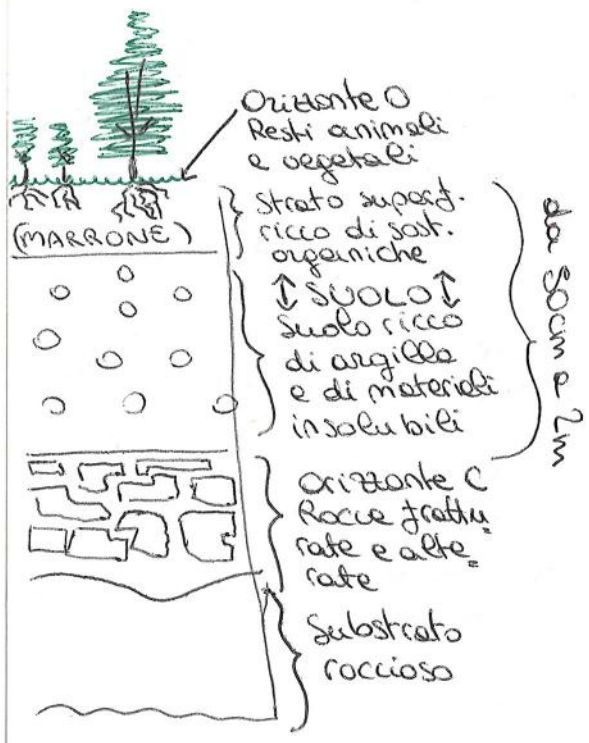 Orizzonte O
Resti animali
e vegetali
(MARRONE)
strato superf.
ricco di sost.
organiche
↕ SUOLO ↕
Suolo ricco
di argilla
e di materiali
insolubili
da 50cm a 2m
Orizzonte C
Rocce frattu
rate e alte
rate
Substrato
roccioso